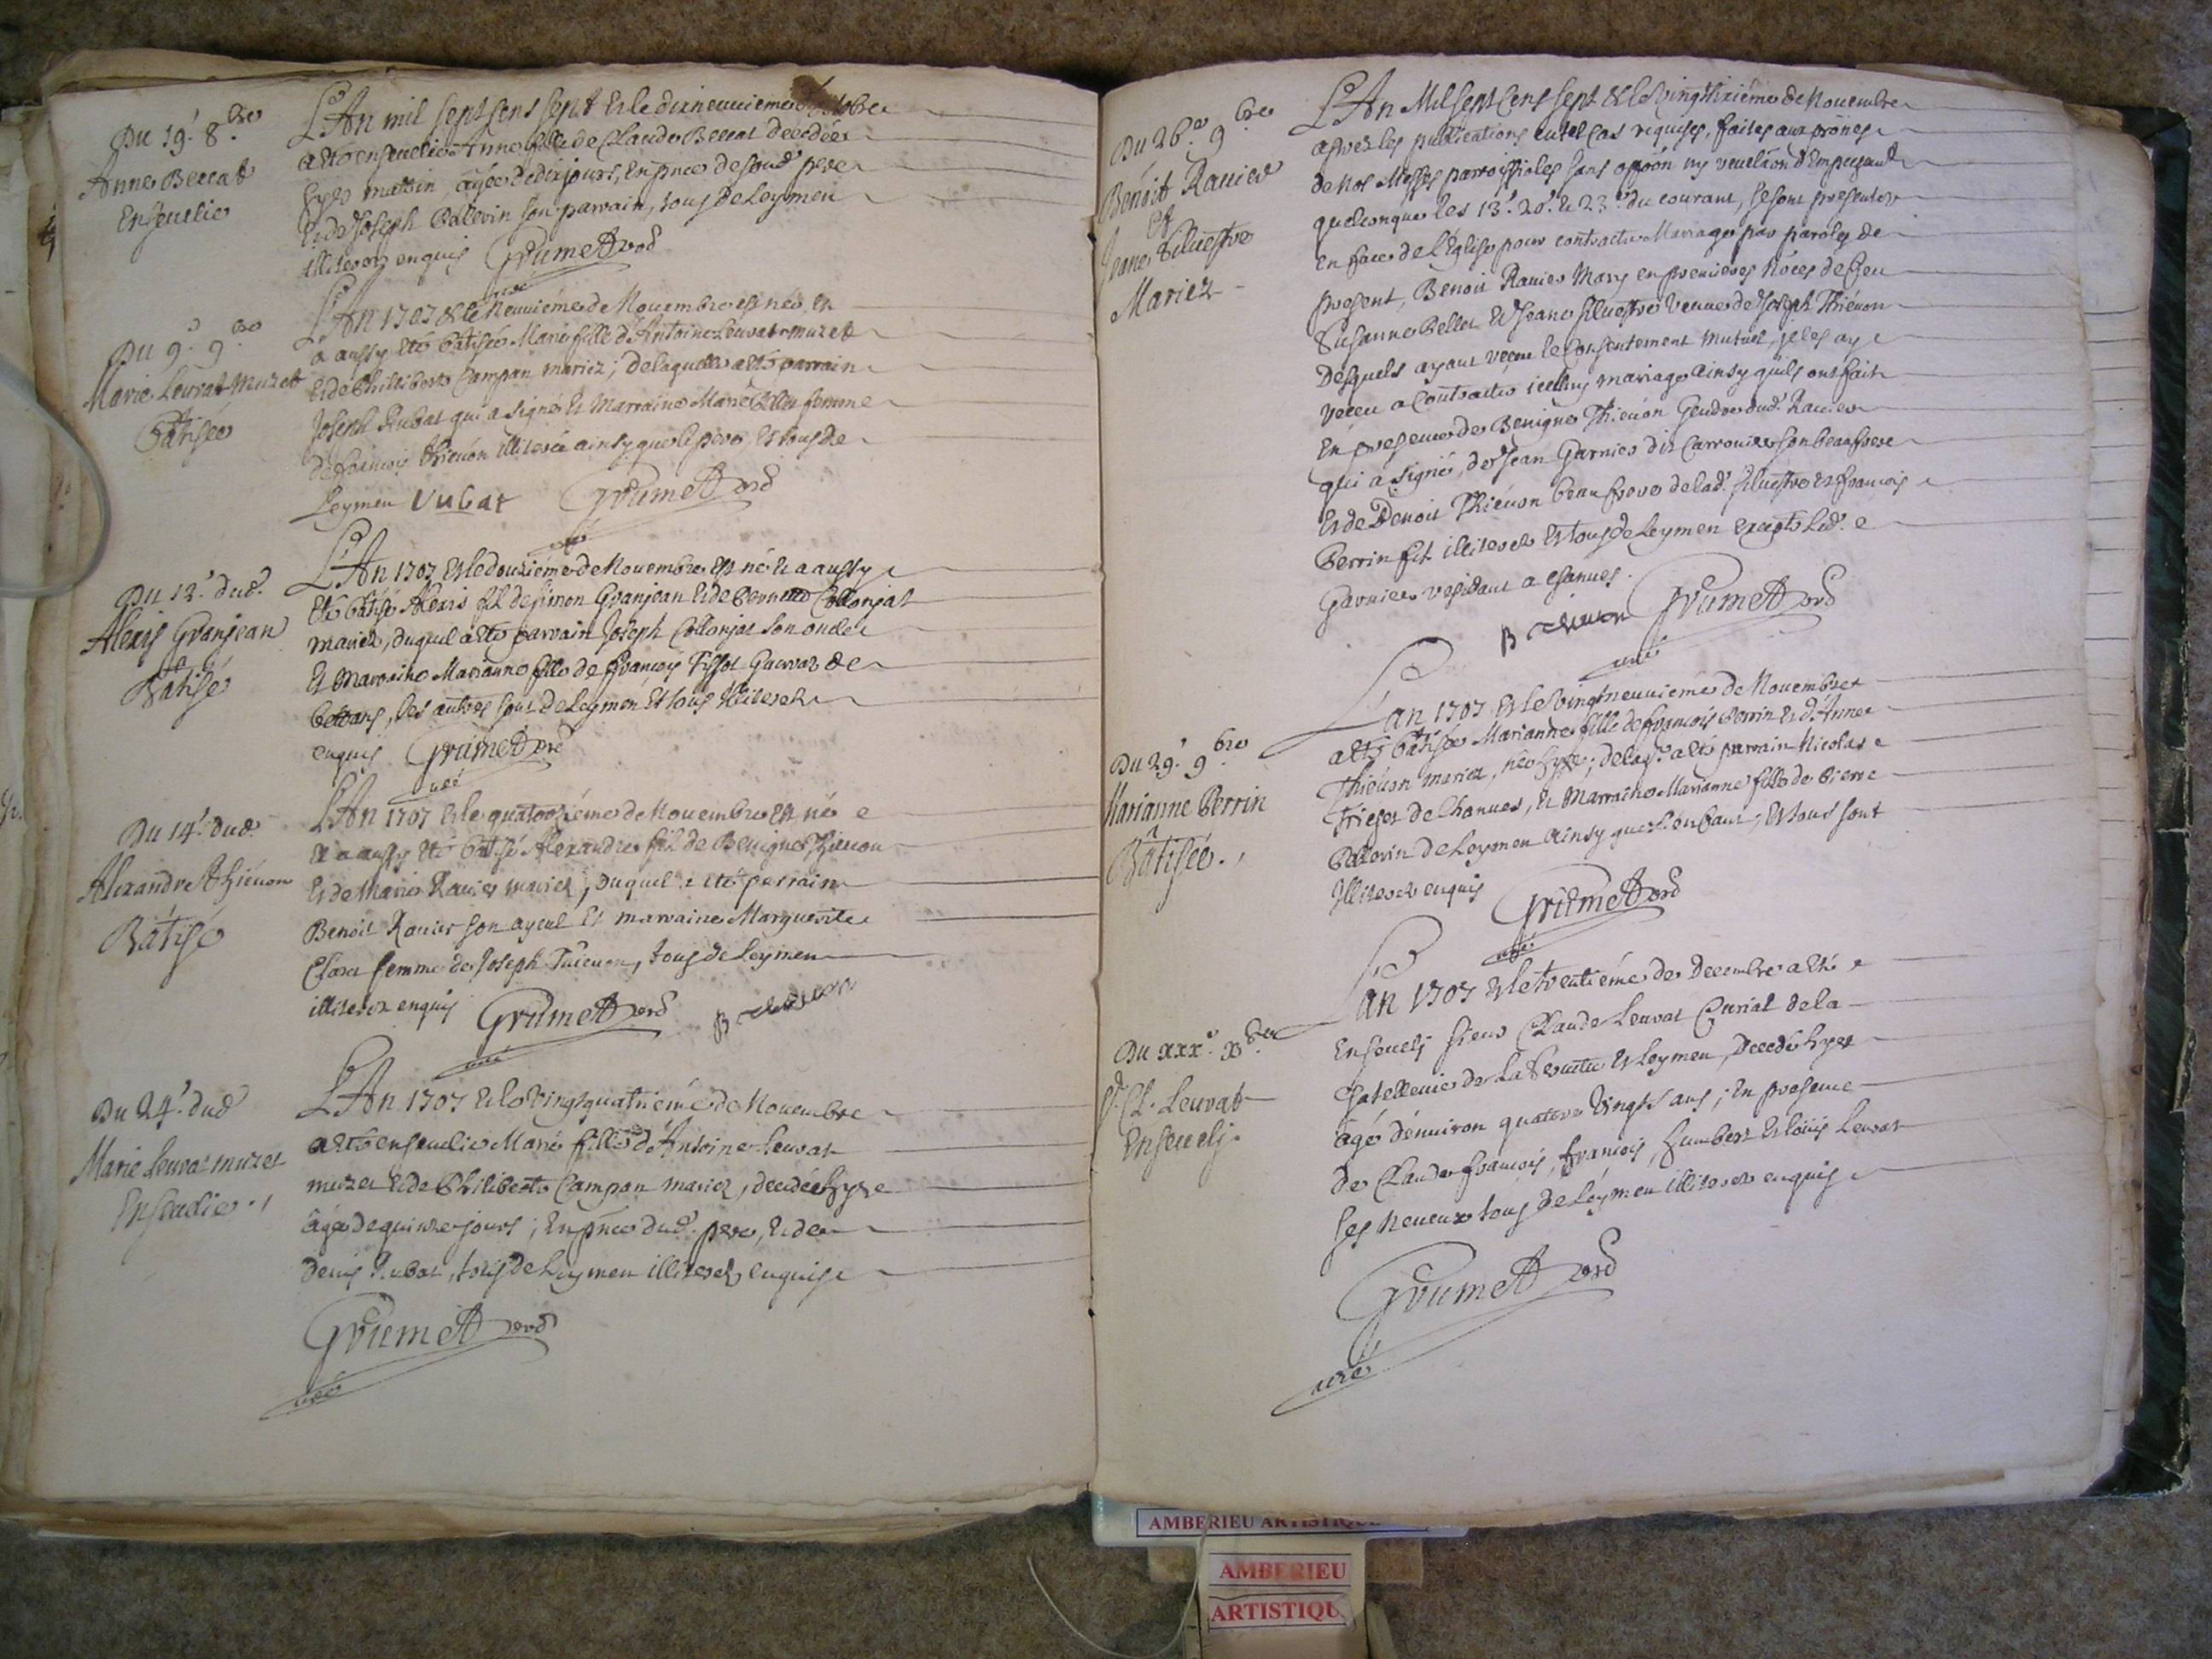 Du 19.e 8.bre
Anne Beccat
Enseuelie
L'An mil sept cens sept & le dixneuuieme octobre
a eté enseuelie Anne fille de Claude Beccat decedée
hyer mattin agée de dix jours, En pnce de soud. pere
Et de Joseph Pellevin son parrain, tous de Leymen
illiterez enquis Grumet
curé
Du 9.e 9.bre
Marie Leuvat Muzet
Bâtisée
L'An 1707 & le Neuuiéme de Nouembre est née, Et
a aussy eté bâtisée Marie fille d'Antoine Leuvat-muzet
Et de Philliberte Campan mariez; de laquelle a eté parrain
Joseph Rubat qui a signé Et Marraine Marie Beller femme
de francois thieuon illiterée ainsy que le pere Et tous de
Leymen Rubat Grumet
curé
Du 12.e dud.
Alexis Granjean
Bâtisé
L'An 1707 Et le douziéme de Nouembre Est né Et a aussy
eté bâtisé Alexis fils de simon Granjean Et de Collonjat
mariez, duquel a eté parrain Joseph Collonjat son oncle
Et Marraine Marianne fille de francois Tissot de
, les autres sont de Leymen Et tous illiterez
enquis Grumet
curé
Du 14.e dud.
Alexandre Thiéuon
Bâtisé
L'An 1707 Et le quatorziéme de Nouembre Est né
Et a aussy eté bâtisé Alexandre fils de Benigne Thieuon
Et de Marie Rauier mariez, duquel a eté parrain
Benoit Rauier son ayeul Et marraine Marguerite
Clara femme de Joseph Thieuon, tous de Leymen
illiterez enquis Grumet B Thieuon
curé
Du 24.e dud
Marie Leuvat muzet
Enseuelie
L'An 1707 Et le Vingtquatriéme de Nouembre
a eté enseuelie Marie fille d'Antoine Leuvat
muzet Et de Philiberte Campan mariez, decedée hyer
âgée de quinze jours; En pnce dud. pere, Et de
Denis Rubat, tous de Leymen illiterez enquis
Grumet
curé
Du 26.e 9.bre
Benoit Rauier
Et
Jeane Siluestre
Mariez
L'An Mil sept Cens sept & le Vingtsixiéme de Nouembre
apres les publications en tel cas requises, faites aux prônes
de Nos Messes parroissiales sans oppôon ny reuelâon d'Empechement
quelconque les 13.e 20.e & 23.e du courant, se sont presentez
en face de l'Eglise pour contracter Mariage par paroles de
present, Benoit Rauier Mary en premieres Nôces de feu
Susanne Beller Et Jeane Siluestre Veuue de Joseph Thieuon
Desquels ayant receu le Consentement Mutuel, je les ay
receu a Contracter icelluy mariage Ainsy quils ont fait
En presence de Benigne Thieuon Gendre dud. Rauier
qui a signé, de Jean Garnier dit Carrouier son beaufrere
Et de Benoit Thieuon beaufrere de lad. Siluestre Et francois
Perrin fils illiterez Et tous de Leymen excepté led.
Garnier residant a Chanues.
B Thieuon Grumet
curé
Du 29.e 9.bre
Marianne Perrin
Bâtisée.
L'an 1707 Et le Vingtneuuieme de Nouembre
a eté bâtisée Marianne fille de francois Perrin Et d'Anne
Thieuon mariez, née hyer; de laq.e a eté parrain Nicolas
de Chanues, Et Marraine Marianne fille de Pierre
Pellevin de Leymen Ainsy que l'enfant; Et tous sont
Illiterez enquis Grumet
curé
Du xxx.e Xbre
S.r Cl. Leuvat
Enseuely
L'an 1707 Et le trentiéme de Decembre a eté
Enseuely sieur Claude Leuvat Curial de la
Chatellenie de La Seruette Et Leymen, Decedé hyer
âgé d'enuiron quatre Vingts ans; En presence
de Claude francois, francois, Humbert Et loüis Leuvat
ses neueux tous de Leymen illiterez enquis
Grumet
curé
AMBERIEU ARTISTIQUE
AMBERIEU
ARTISTIQU